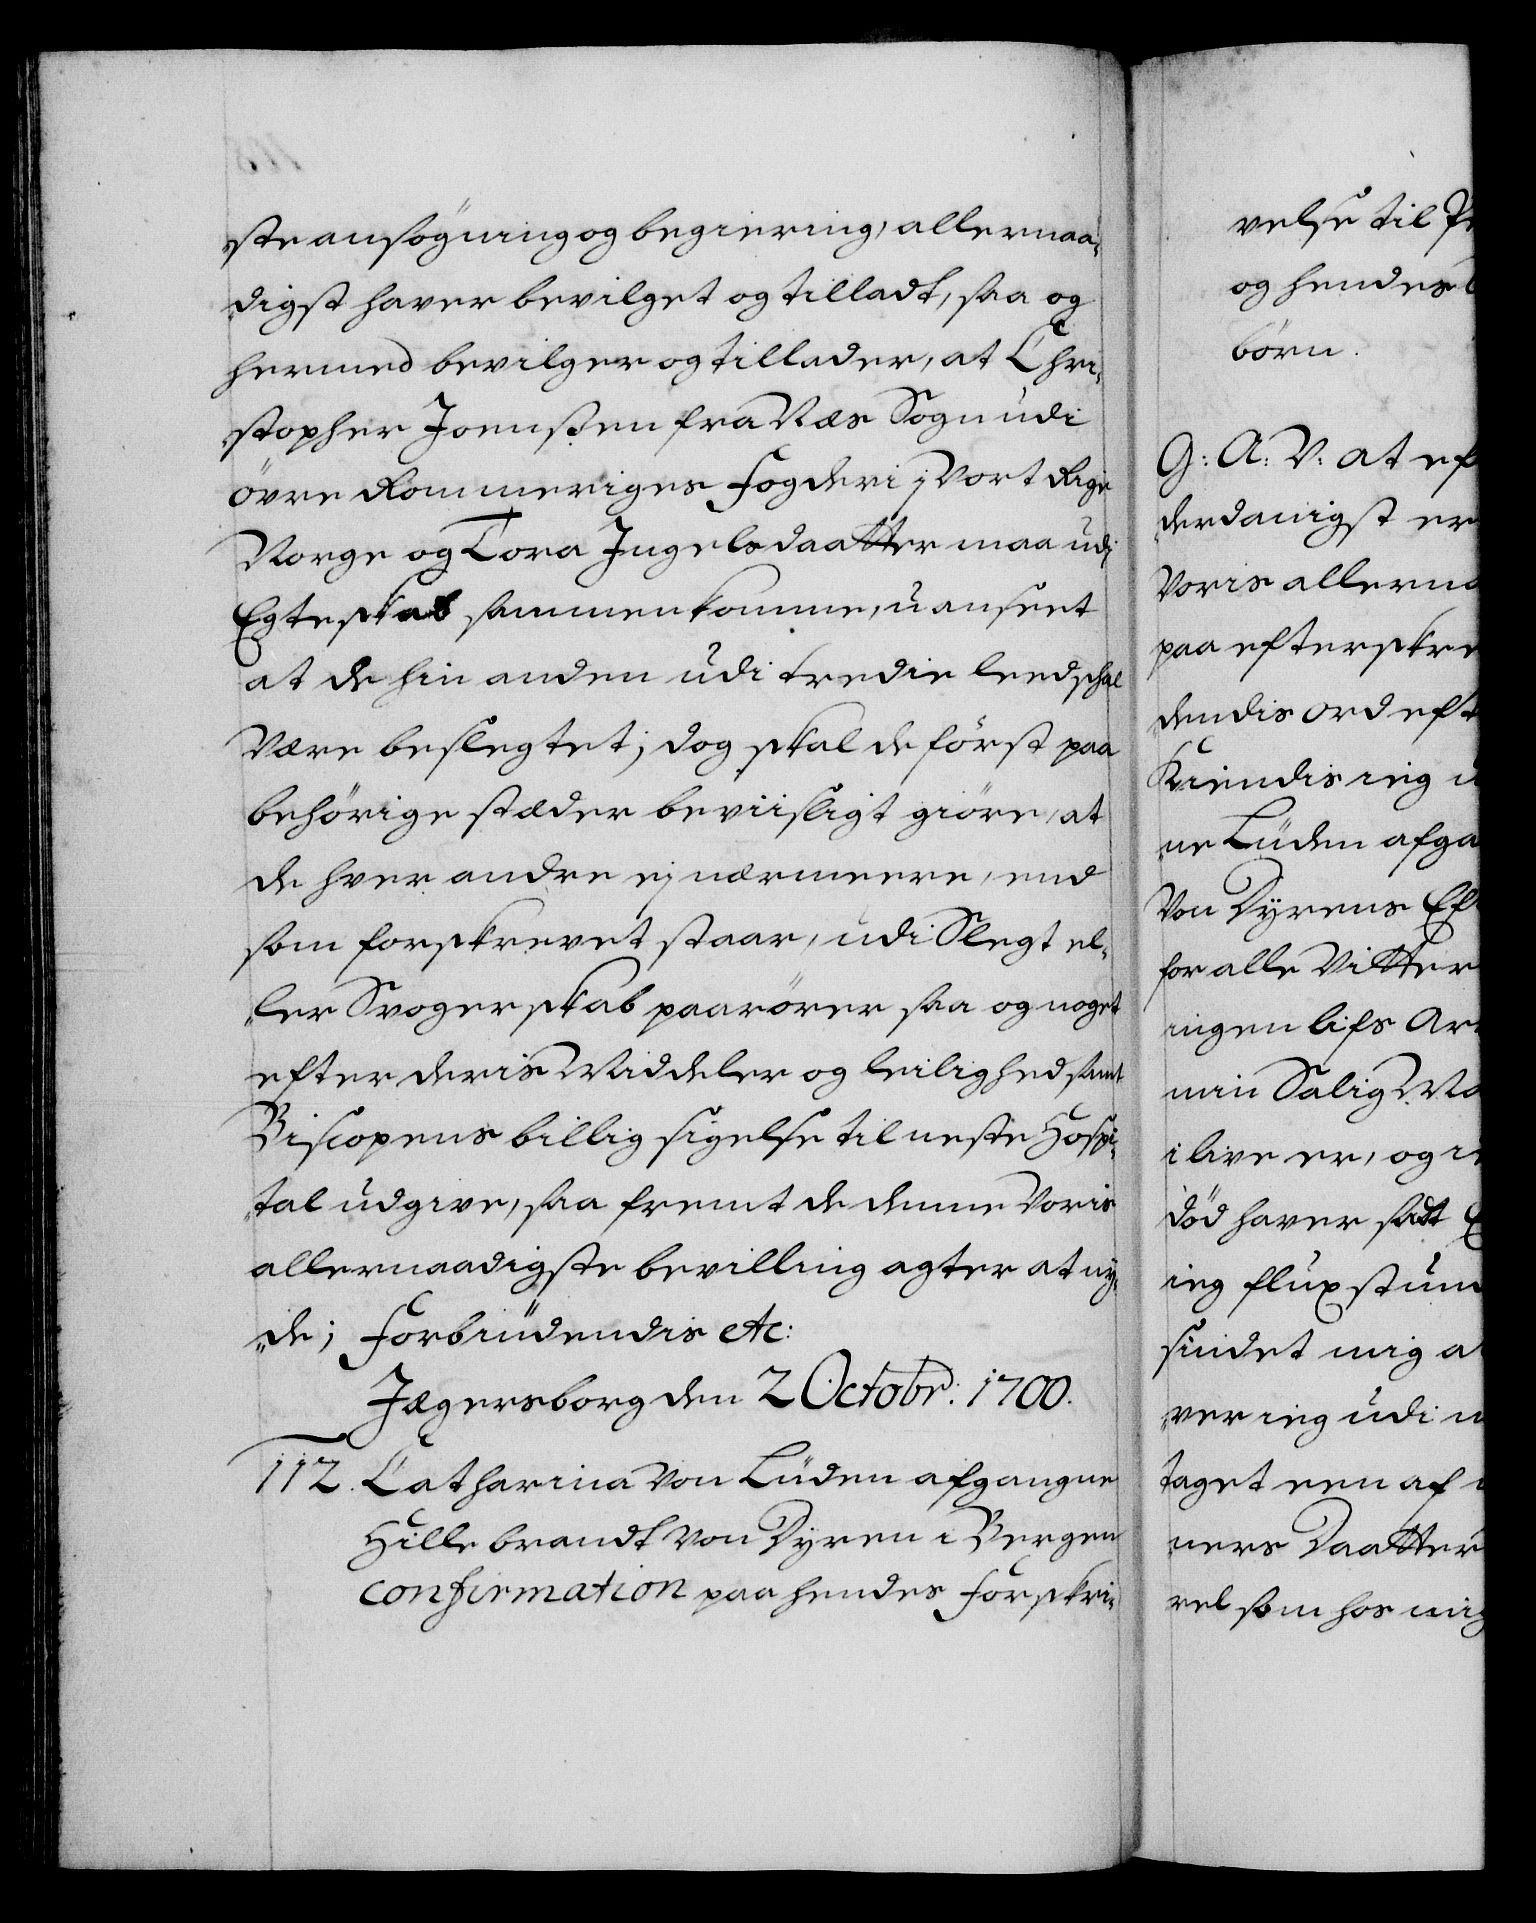 ste ansögning og begiering, allernaa-
digst haver bevilget og tilladt, saa og
hermed bevilger og tillader, at Chri-
stopher Joenssen fra Næs Sogn udi
övre Rommeriges fogderi i Vort Rige
Norge og Tora Ingelsdaatter maa udj
Egteskab sammenkomme, uanseet
at de hin anden udi tredie leed schal
være beslegtet; dog skal de först paa
behörige stæder beviisligt giöre, at
de hver andre ej nærmeere, end
som forskrevet staar, udi Slegt el-
ler Svogerskab paarörer saa og noget
efter deris Middeler og leilighed samt
Biscopens billig sigelse til neste Hospi-
tal udgive, saa fremt de denne Voris
allernaadigste bevilling agter at ny-
de; Forbiudendis etc:
Jægersborg den 2 Octobr: 1700.
112. Catharina Von Lüden afgangne
Hillebrandt Von Dyren i Bergen
confirmation paa hendes forskri-
velse til
og hendes
börn.
G: A: V: at
derdanigst
Voris
paa
dendis ord
Kiendis ieg
ne Lüden
Von Dyrens
for alle Vitter
ingen lifs
min Salig
i live er, og
död haver sadt
ieg flux
findet mig
ver ieg udi
taget een af
ners Daatter
rel som hos mig